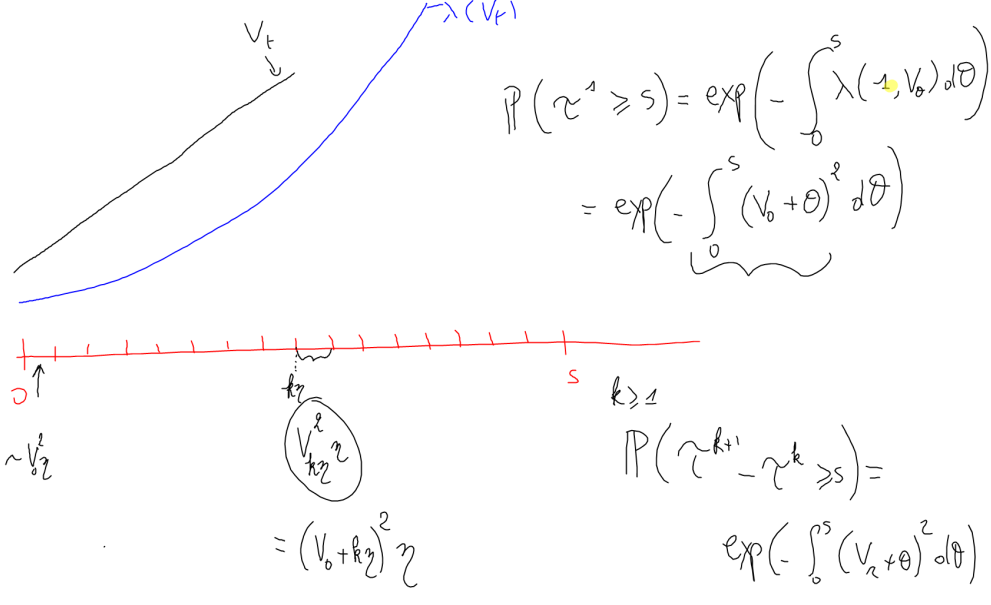 V_t
λ(V_t)
ℙ(τ^1 ≥ s) = exp(-∫_0^s λ(1, V_θ) dθ)
= exp(-∫_0^s (V_0 + θ)^2 dθ)
0
kη
s
~V_0^2 η
V_{kη}^2 η
= (V_0 + kη)^2 η
k ≥ 1
ℙ(τ^{k+1} - τ^k ≥ s) =
exp(-∫_0^s (V_r + θ)^2 dθ)